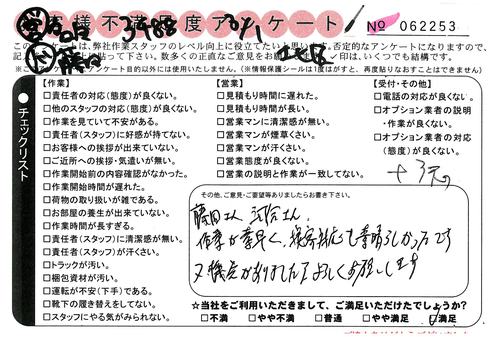 お客様不満足度アンケート
No 062253
このアンケートは、弊社作業スタッフのレベル向上に役立てたいと思います。否定的なアンケートになりますので、
て下さい。数多くの正直なご意見をお願い
印は、いくつでも結構です。
アンケート目的以外には使用いたしません。(※情報保護シールは1度はがすと、再度貼りなおすことはできません)
チェックリスト
【作業】
□責任者の対応(態度)が良くない。
□他のスタッフの対応(態度)が良くない。
□作業を見ていて不安がある。
□責任者(スタッフ)に好感が持てない。
□お客様への挨拶が出来ていない。
□ご近所への挨拶・気遣いが無い。
□作業開始前の内容確認がなかった。
□作業開始時間が遅れた。
□荷物の取り扱いが雑である。
□お部屋の養生が出来ていない。
□作業時間が長すぎる。
□責任者(スタッフ)に清潔感が無い。
□責任者(スタッフ)が汗くさい。
□トラックが汚い。
□梱包資材が汚い。
□運転が不安(下手)である。
□靴下の履き替えをしてない。
□スタッフにやる気がみられない。
【営業】
□見積もり時間に遅れた。
□見積もり時間が長い。
□営業マンに清潔感が無い。
□営業マンが煙草くさい。
□営業マンが汗くさい。
□営業態度が良くない。
□営業の説明と作業が一致してない。
【受付・その他】
□電話の対応が良くない。
□オプション業者の説明
・作業が良くない。
□オプション業者の対応
(態度)が良くない。
その他、ご意見・ご要望等ありましたらお書き下さい。
藤田さん 河合さん
作業が素早く、接客対応も素晴らしかったです
又機会がありましたらよろしくお願いします
☆当社をご利用いただきまして、ご満足いただけたでしょうか?
□不満 □やや不満 □普通 □やや満足 □満足